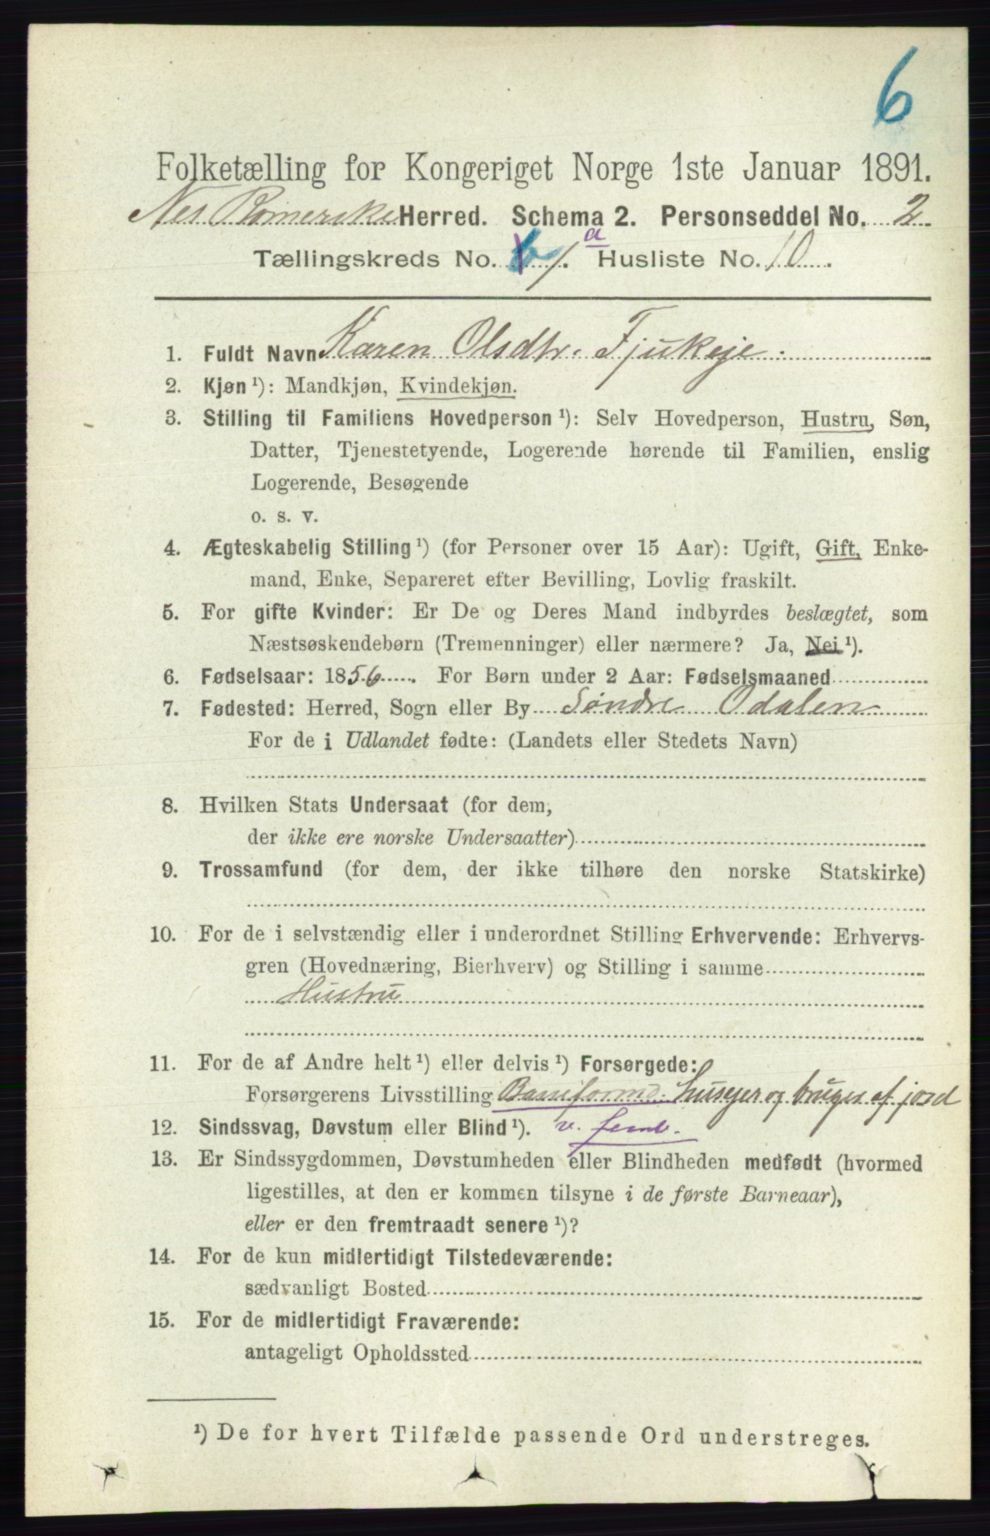 6
Folketælling for Kongeriget Norge 1ste Januar 1891.
Nes Romerike Herred. Schema 2. Personseddel No. 2
a
Tællingskreds No. 6 1. Husliste No. 10
1. Fuldt Navn Karen Olsdtr. Fjukeje.
2. Kjøn ¹): Mandkjøn, Kvindekjøn.
3. Stilling til Familiens Hovedperson ¹): Selv Hovedperson, Hustru, Søn,
Datter, Tjenestetyende, Logerende hørende til Familien, enslig
Logerende, Besøgende
o. s. v.
4. Ægteskabelig Stilling ¹) (for Personer over 15 Aar): Ugift, Gift, Enke-
mand, Enke, Separeret efter Bevilling, Lovlig fraskilt.
5. For gifte Kvinder: Er De og Deres Mand indbyrdes beslægtet, som
Næstsøskendebørn (Tremenninger) eller nærmere? Ja, Nei ¹).
6. Fødselsaar: 1856. For Børn under 2 Aar: Fødselsmaaned
7. Fødested: Herred, Sogn eller By Søndre Odalen
For de i Udlandet fødte: (Landets eller Stedets Navn)
8. Hvilken Stats Undersaat (for dem,
der ikke ere norske Undersaatter)
9. Trossamfund (for dem, der ikke tilhøre den norske Statskirke)
10. For de i selvstændig eller i underordnet Stilling Erhvervende: Erhvervs-
gren (Hovednæring, Bierhverv) og Stilling i samme
Hustru
11. For de af Andre helt ¹) eller delvis ¹) Forsørgede:
Forsørgerens Livsstilling Baneformd. husejer og bruger af jord
12. Sindssvag, Døvstum eller Blind ¹). v. jernb.
13. Er Sindssygdommen, Døvstumheden eller Blindheden medfødt (hvormed
ligestilles, at den er kommen tilsyne i de første Barneaar),
eller er den fremtraadt senere ¹)?
14. For de kun midlertidigt Tilstedeværende:
sædvanligt Bosted
15. For de midlertidigt Fraværende:
antageligt Opholdssted
¹) De for hvert Tilfælde passende Ord understreges.